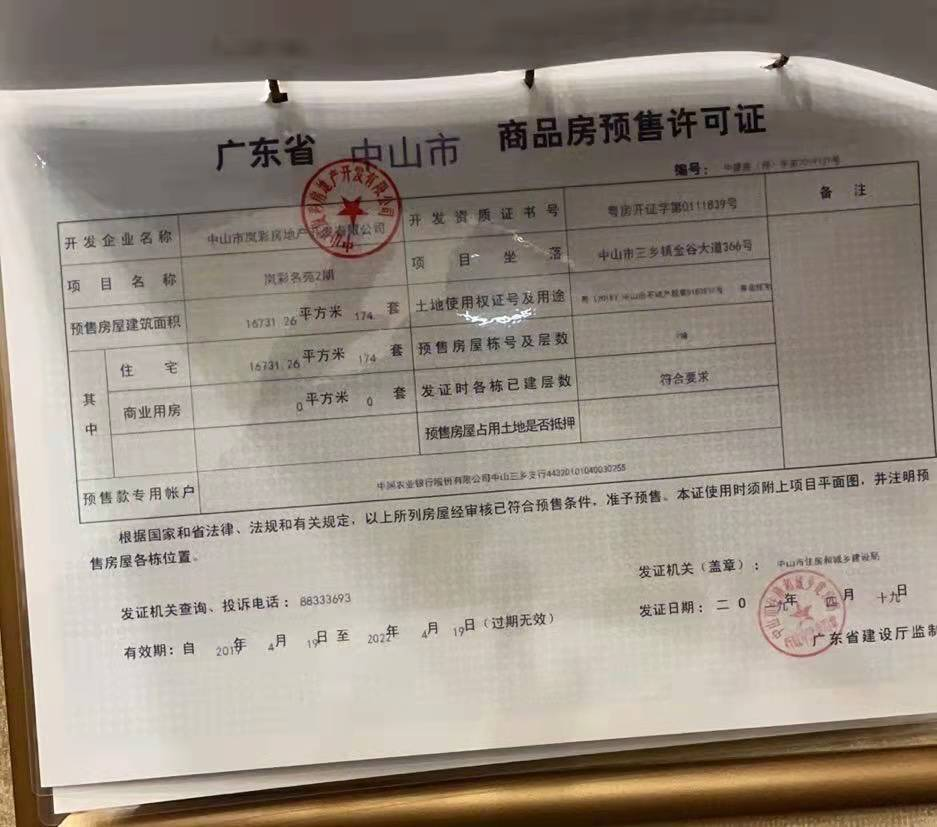 广东省 中山市 商品房预售许可证
编号：
开发企业名称 中山市岚彩房地产开发有限公司 开发资质证书号 粤房开证字第0111839号 备注
项目名称 岚彩名苑2期 项目坐落 中山市三乡镇金谷大道366号
预售房屋建筑面积 16731.26平方米 174 套 土地使用权证号及用途
其中 住宅 16731.26平方米 174 套 预售房屋栋号及层数
商业用房 0平方米 0 套 发证时各栋已建层数 符合要求
预售房屋占用土地是否抵押
预售款专用帐户 中国农业银行股份有限公司中山三乡支行44320101040030255
根据国家和省法律、法规和有关规定，以上所列房屋经审核已符合预售条件，准予预售。本证使用时须附上项目平面图，并注明预
售房屋各栋位置。
发证机关（盖章）： 中山市住房和城乡建设局
发证机关查询、投诉电话：88333693
发证日期：二0一九年 四月 十九日
有效期：自 2019年 4月 19日 至 2022年 4月 19日（过期无效）
广东省建设厅监制